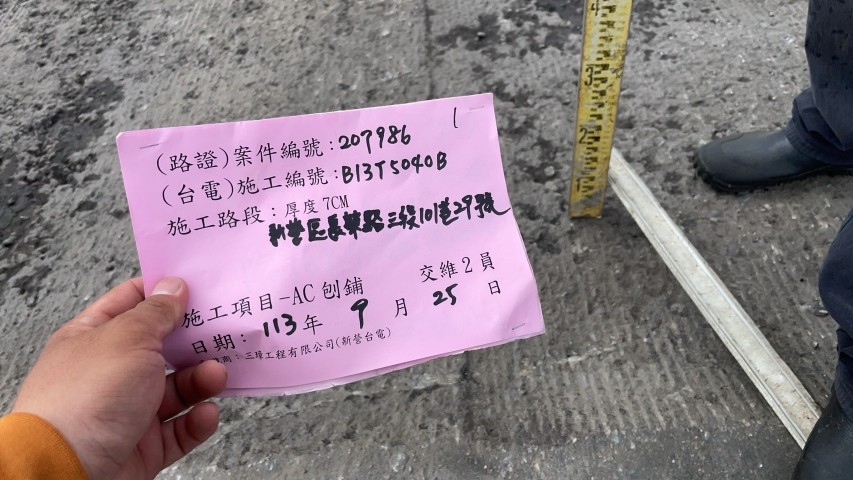 (路證)案件編號:207986
(
(台電)施工編號:B13T5040B
施工路段:厚度7CM
新營區長榮路三段101巷29號
施工項目-AC刨鋪
交維2員
日期:113年9月25日
三璋工程有限公司(新營台電)
4
3
2
1